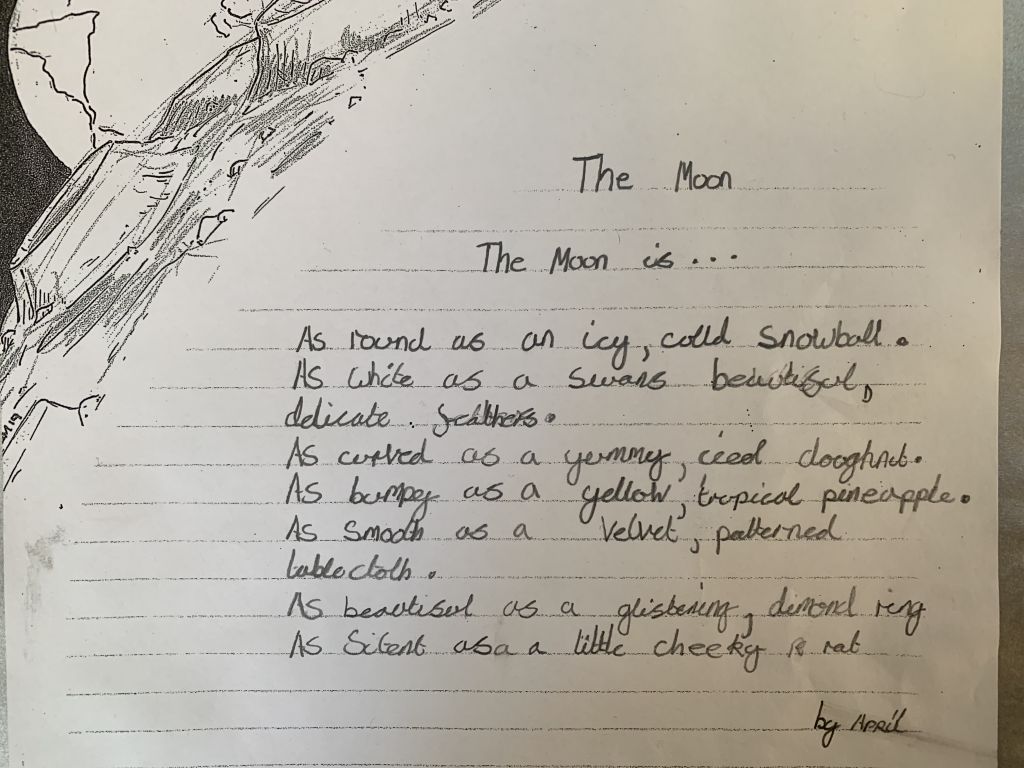 The Moon
The Moon is...
As round as an icy, cold snowball.
As white as a swans beautiful,
delicate. feathers.
As curved as a yummy, iced doughnut.
As bumpy as a yellow, tropical pineapple.
As Smooth as a Velvet, patterned
tablecloth.
As beautiful as a glistening, dimond ring
As Silent as a a little cheeky rat
by APRIL